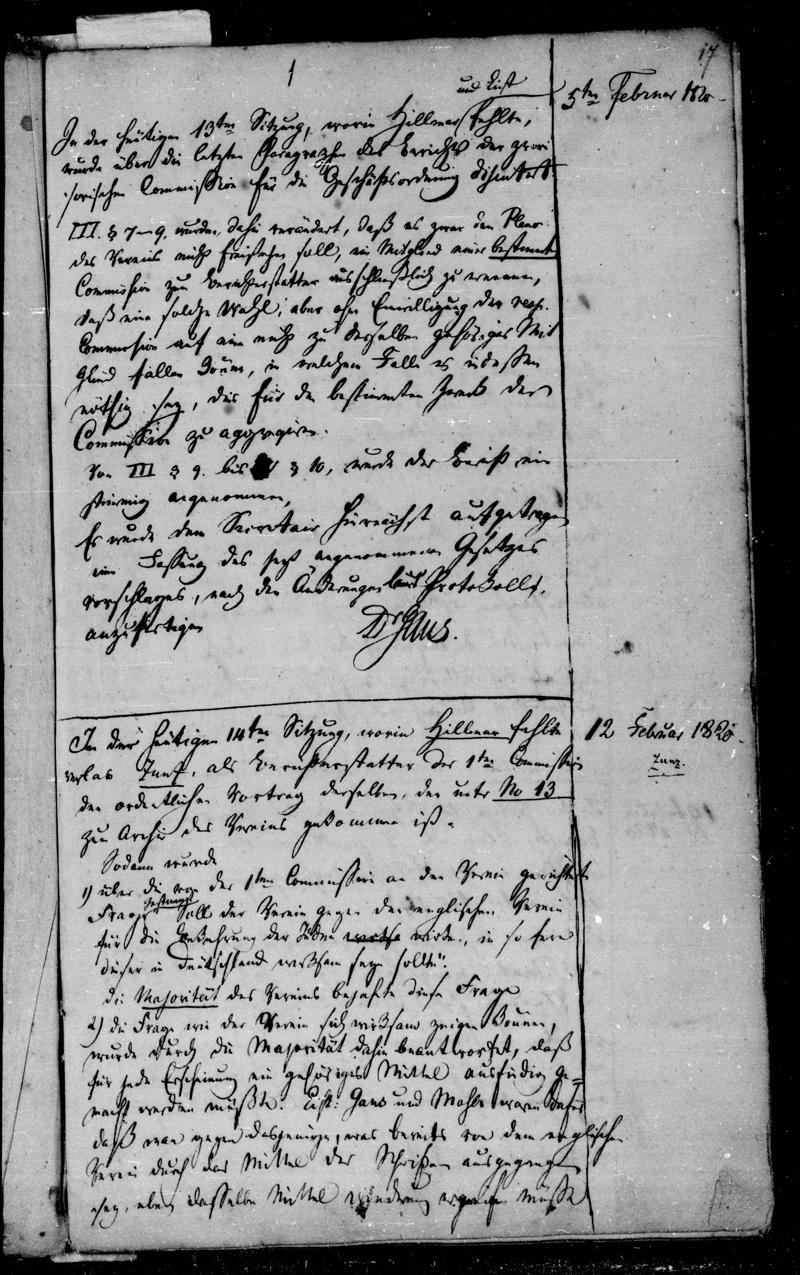 1
17
und List
5ten Februar 1820.
In der heutigen 13ten Sitzung, worin Hillmar fehlte,
wurde über die letzten Paragraphen des Berichts der provi
sorischen Commission für die Geschäftsordnung discutirt.
III. § 7-9. wurden dahin verändert, daß es zwar dem Pleno
des Vereins nicht freistehen soll, ein Mitglied einer bestimmten
Commission zum Berichterstatter ausschließlich zu ernennen,
daß eine solche Wahl, aber ohne Einwilligung der resp.
Commission auf ein nicht zu derselben gehöriges Mit
glied fallen könne, in welchem Falle es indessen
nöthig sey, dies für den bestimmten Zweck der
Commission zu aggregiren.
Von III § 9. bis § 10, wurde der Bericht ein
stimmig angenommen,
Es wurde dem Secretair hiernächst aufgetragen
eine Fassung des jetzt angenommenen Gesetzes
vorschlages, nach den Änderungen laut Protokolls,
anzufertigen
Dr Gans.
In der heutigen 14ten Sitzung, worin Hillmar fehlte
12 Februar 1820.
verlas Zunz, als Berichterstatter der 1ten Commission
Zunz.
den ordentlichen Vortrag derselben, der unter No 13
zum Archiv des Vereins gekommen ist.
Sodann wurde
1) über die von der 1ten Commission an den Verein gerichtete
Frage gestimmt
Soll der Verein gegen den englischen Verein
für die Bekehrung der Juden wirken, in so fern
dieser in Deutschland wirksam seyn sollte".
die Majorität des Vereins bejahte diese Frage
2) die Frage wie der Verein sich wirksam zeigen könne,
wurde durch die Majorität dahin beantwortet, daß
für jede Erscheinung ein gehöriges Mittel ausfindig ge-
macht werden müßte. List: Gans und Moser waren dafür
daß man gegen dasjenige, was bereits von dem englischen
Verein durch das Mittel der Schriften ausgegangen
sey, eben dasselbe Mittel wiederum ergreifen müsse